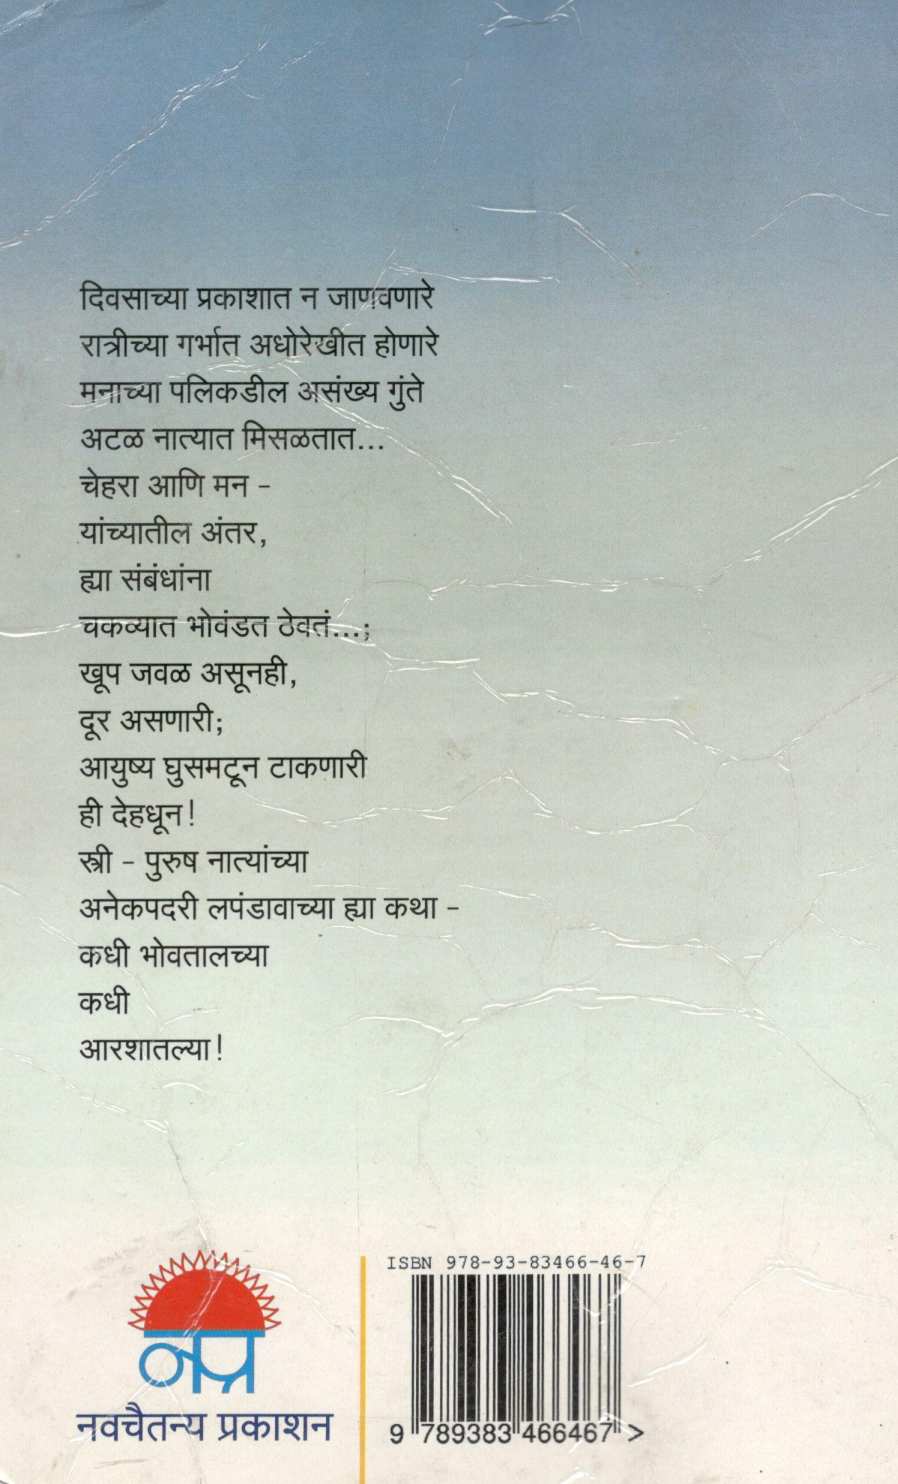 दिवसाच्या प्रकाशात न जाणवणारे
रात्रीच्या गर्भात अधोरेखीत होणारे
मनाच्या पलिकडील असंख्य गुंते
अटळ नात्यात मिसळतात...
चेहरा आणि मन -
यांच्यातील अंतर,
ह्या संबंधांना
चकव्यात भोवंडत ठेवतं...;
खूप जवळ असूनही,
दूर असणारी;
आयुष्य घुसमटून टाकणारी
ही देहधून!
स्त्री - पुरुष नात्यांच्या
अनेकपदरी लपंडावाच्या ह्या कथा -
कधी भोवतालच्या
कधी
आरशातल्या!
नप्र
नवचैतन्य प्रकाशन
ISBN 978-93-83466-46-7
9 789383 466467 >